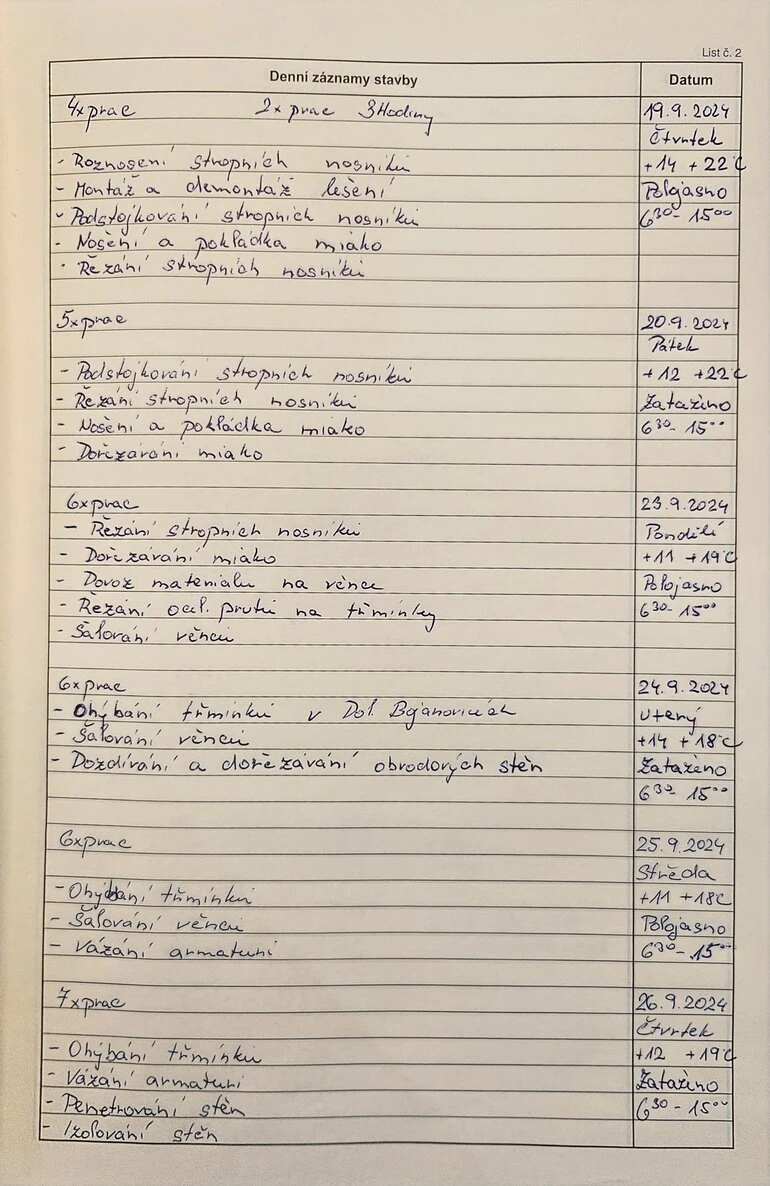 List č. 2
Denní záznamy stavby Datum
4xprac 2xprac 3Hodiny 19.9.2024
Čtvrtek
- Roznosení stropních nosníků +14 +22°C
- Montáž a demontáž lešení Polojasno
- Podstojkování stropních nosníků 6³⁰- 15⁰⁰
- Nošení a pokládka miako
- Řezání stropních nosníků
5xprac 20.9.2024
Pátek
- Podstojkování stropních nosníků +12 +22°C
- Řezání stropních nosníků Zataženo
- Nošení a pokládka miako 6³⁰- 15⁰⁰
- Dořezávání miako
6xprac 23.9.2024
- Řezání stropních nosníků Pondělí
- Dořezávání miako +11 +19°C
- Dovoz materialu na věnce Polojasno
- Řezání ocel. prutů na třmínky 6³⁰- 15⁰⁰
- Šalování věnců
6xprac 24.9.2024
- Ohýbání třmínků v Dol. Bojanovicích Uterý
- Šalování věnců +14 +18°C
- Dozdívání a dořezávání obvodových stěn Zataženo
6³⁰ 15⁰⁰
6xprac 25.9.2024
Středa
- Ohýbání třmínků +11 +18°C
- Šalování věnců Polojasno
- Vázání armaturí 6³⁰- 15⁰⁰
7xprac 26.9.2024
Čtvrtek
- Ohýbání třmínků +12 +19°C
- Vázání armaturí Zataženo
- Penetrování stěn 6³⁰- 15⁰⁰
- Izolování stěn